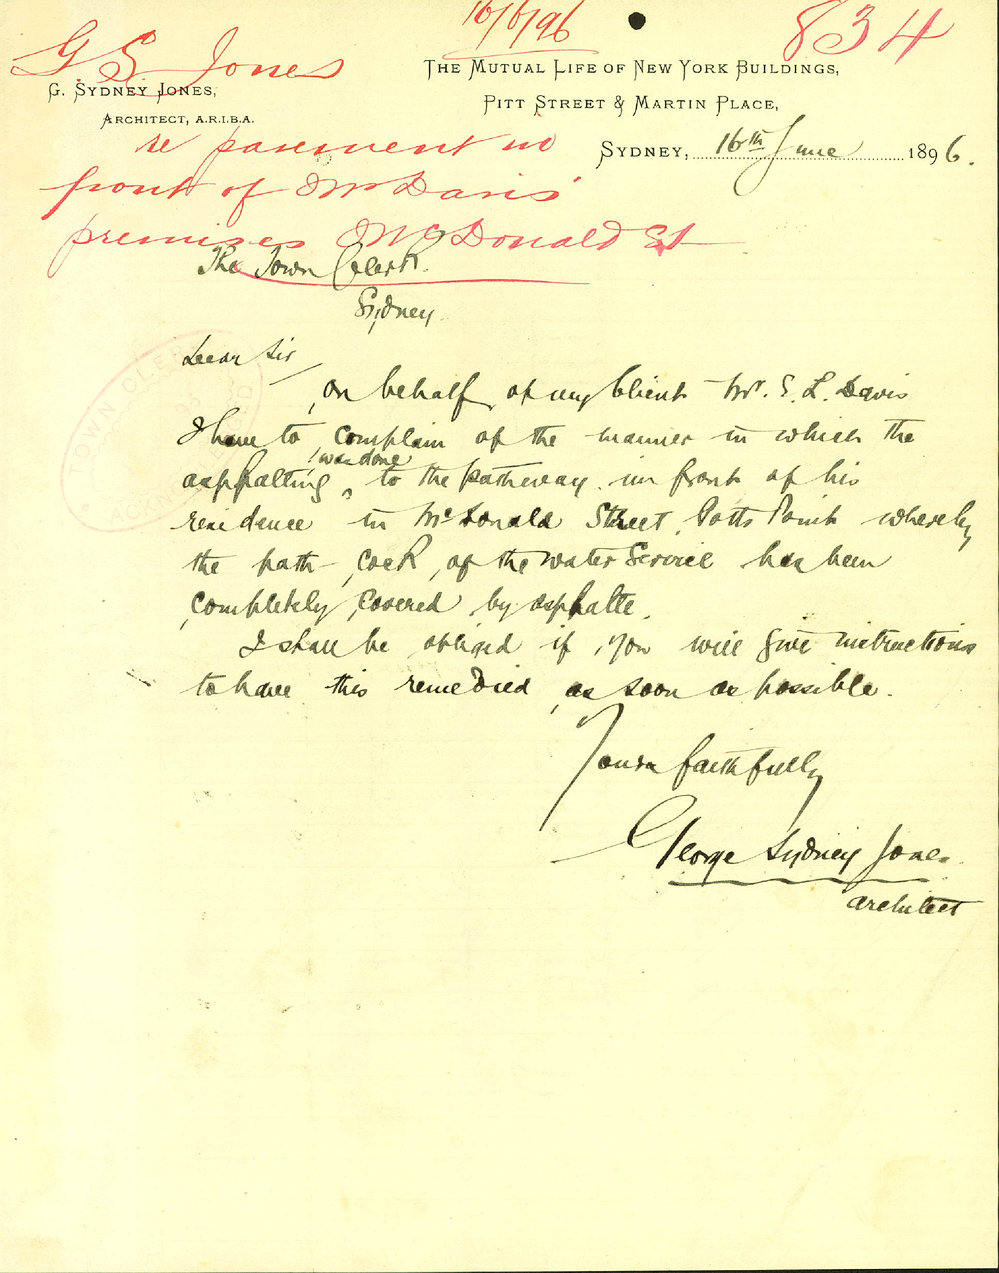 16/6/96
834
G. S. Jones
THE MUTUAL LIFE OF NEW YORK BUILDINGS,
G. SYDNEY JONES,
PITT STREET & MARTIN PLACE,
ARCHITECT, A.R.I.B.A.
SYDNEY, 16th June 1896.
re pavement in
front of Mr Davis'
premises McDonald St
The Town Clerk.
Sydney.
Dear Sir,
On behalf of my Client Mr. S. L. Davis
I have to complain of the manner in which the
asphalting was done to the pathway in front of his
residence in McDonald Street Potts Point whereby
the path cock of the water service has been
completely covered by asphalte.
I shall be obliged if you will give instructions
to have this remedied as soon as possible.
Yours faithfully
George Sydney Jones.
architect
TOWN CLERK
ACKNOWLEDGED